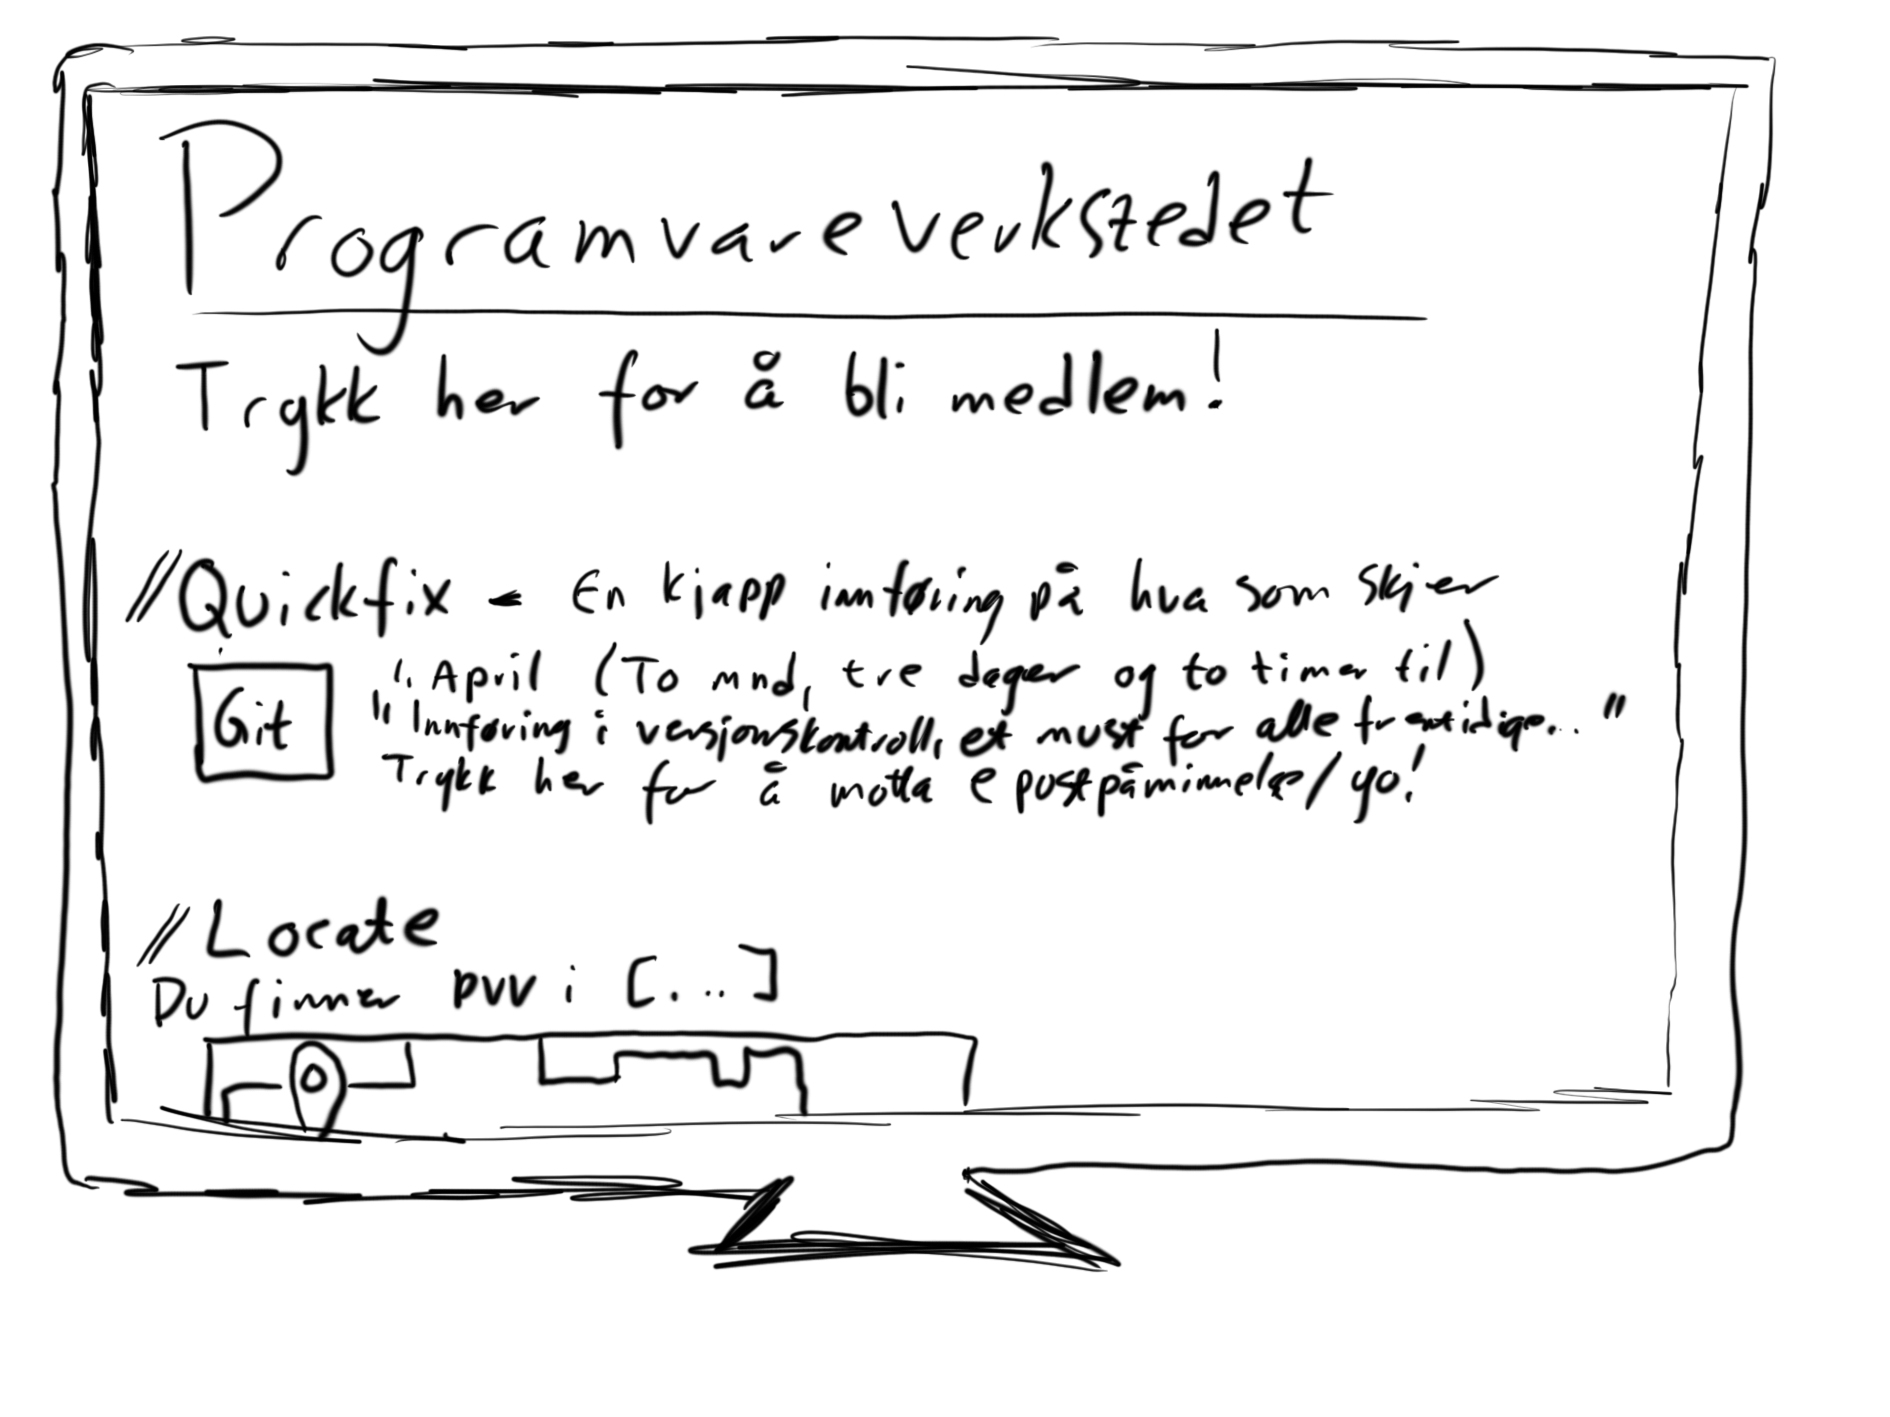 Programvareverkstedet
Trykk her for å bli medlem!
//Quickfix - En kjapp innføring på hva som skjer
Git
April (To mnd, tre dager og to timer til)
"Innføring i versjonskontroll, et must for alle fremtidige..."
Trykk her for å motta epostpåminnelse/yo!
//Locate
Du finner pvv i [...]